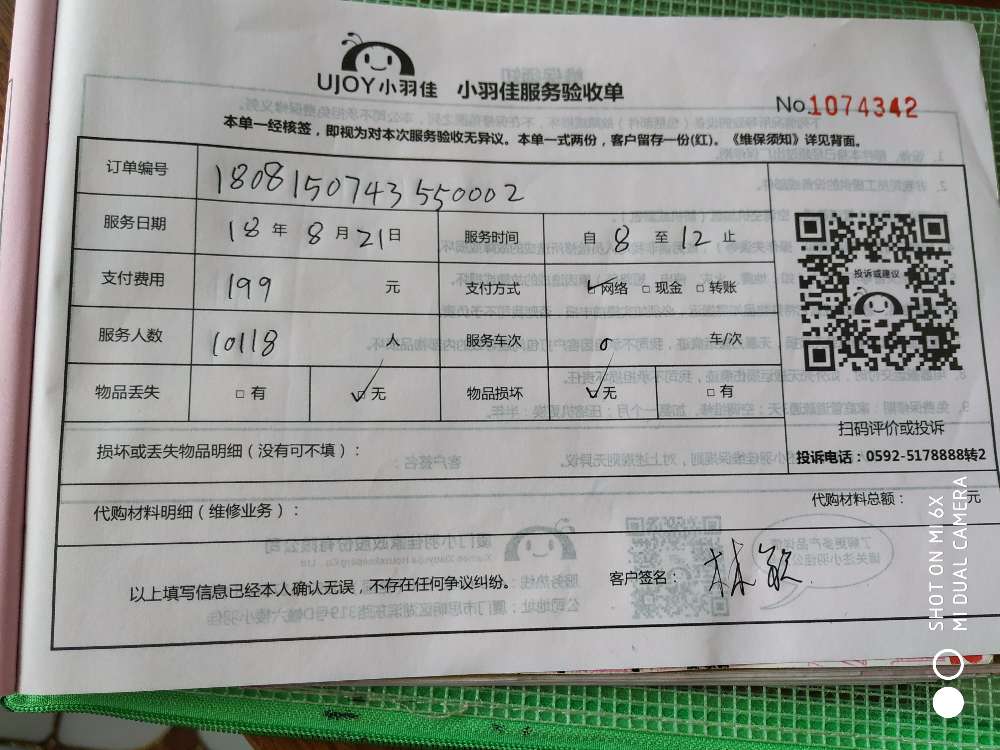 UJOY小羽佳 小羽佳服务验收单
No.1074342
本单一经核签，即视为对本次服务验收无异议。本单一式两份，客户留存一份(红)。《维保须知》详见背面。
订单编号 180815074355 0002
服务日期 18年8月21日 服务时间 自8至12止
支付费用 199 元 支付方式 ✓网络 □现金 □转账
服务人数 10118 人 服务车次 0 车/次
物品丢失 □有 ✓无 物品损坏 ✓无 □有
投诉或建议
扫码评价或投诉
投诉电话：0592-5178888转2
损坏或丢失物品明细（没有可不填）：
代购材料明细（维修业务）： 代购材料总额： 元
以上填写信息已经本人确认无误，不存在任何争议纠纷。 客户签名：林敏
SHOT ON MI 6X
MI DUAL CAMERA